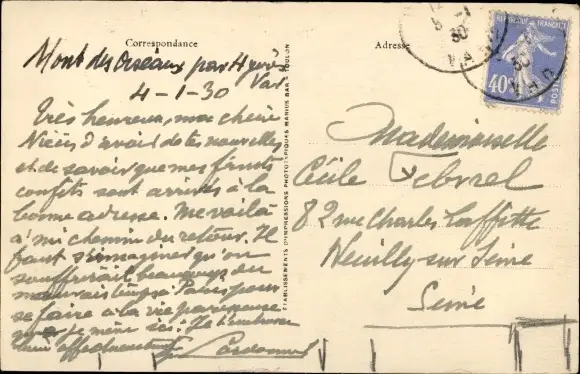 Correspondance
Mont des Oiseaux par Hyères
Var
4-1-30
Très heureux, ma chère
Nièce d'avoir de tes nouvelles
et de savoir que mes fruits
confits sont arrivés à la
bonne adresse. Me voilà
à mi chemin du retour. Il
faut s'imaginer qu'on
souffrirait beaucoup du
mauvais temps à Paris pour
se faire à la vie paresseuse
que je mène ici. Je t'embrasse
bien affectueusement
ETABLISSEMENTS D'IMPRESSIONS PHOTOTYPIQUES MARIUS BAR - TOULON
Adresse
REPUBLIQUE FRANÇAISE
40c
POSTES
Mademoiselle
Cécile Febvrel
82 rue Charles Laffitte
Neuilly sur Seine
Seine